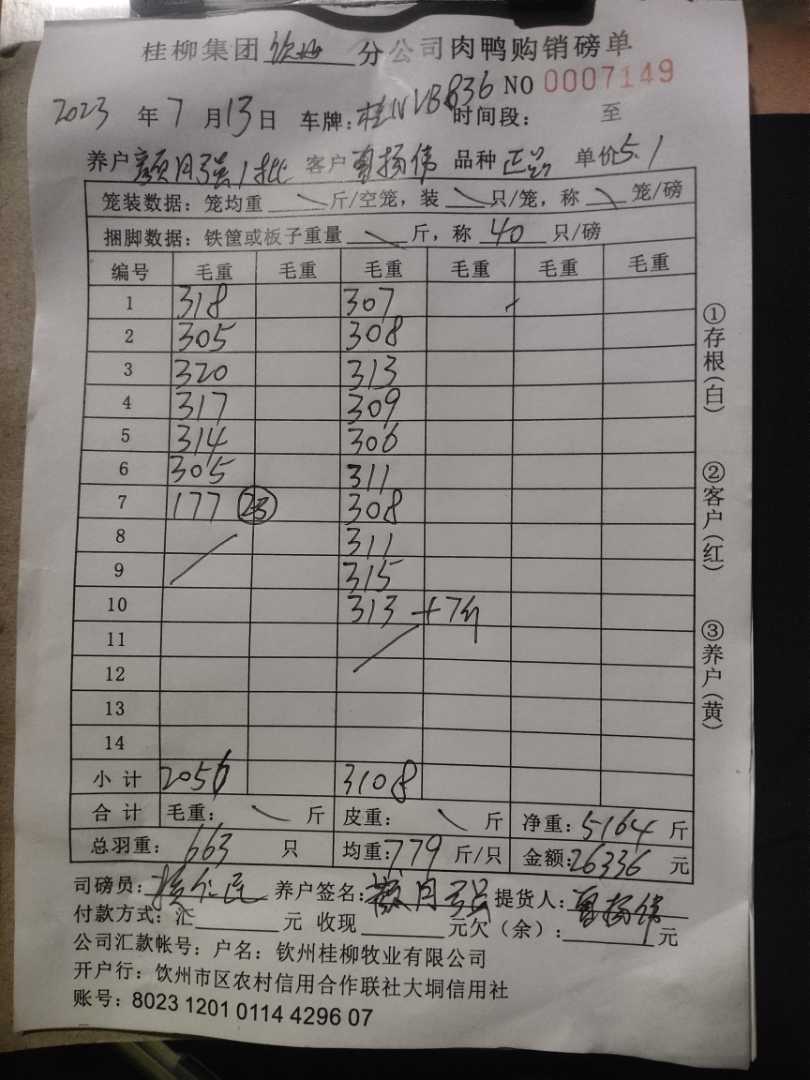 桂柳集团 钦州 分公司肉鸭购销磅单
NO 0007149
2023 年 7 月 13 日 车牌: 桂NVB836 时间段: 至
养户 颜月强1批 客户 杨伟 品种 正常 单价 5.1
笼装数据: 笼均重 斤/空笼, 装 只/笼, 称 笼/磅
捆脚数据: 铁筐或板子重量 斤, 称 40 只/磅
编号 毛重 毛重 毛重 毛重 毛重 毛重
1 318 307
2 305 308
3 320 313
4 317 309
5 314 306
6 305 311
7 177 23 308
8 311
9 315
10 313 +7斤
11
12
13
14
小计 2056 3108
合计 毛重: 斤 皮重: 斤 净重: 5164 斤
总羽重: 663 只 均重: 779 斤/只 金额: 26336 元
司磅员: 养户签名: 颜月强 提货人: 杨伟
付款方式: 汇 元 收现 元欠(余): 元
公司汇款帐号: 户名: 钦州桂柳牧业有限公司
开户行: 钦州市区农村信用合作联社大垌信用社
账号: 8023 1201 0114 4296 07
①存根(白)
②客户(红)
③养户(黄)